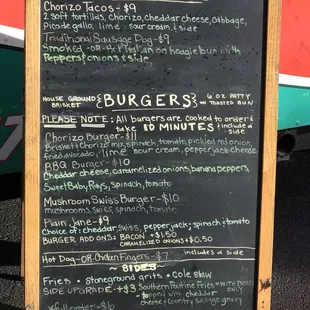 Chorizo Tacos ~ $9
2 soft tortillas, Chorizo, cheddar cheese, cabbage,
Pico de gallo, lime, sour cream, & side
Traditional Sausage Dog - $9
Smoked -OR- Hot Italian on hoagie bun with
Peppers/onions & side
HOUSE GROUND BRISKET
{BURGERS}
6 OZ PATTY ON TOASTED BUN
PLEASE NOTE: All burgers are cooked to order &
take 10 MINUTES *include a side
Chorizo Burger ~ $11
Brisket & Chorizo mix, spinach, tomato, pickled red onion,
fried avocado, lime, sour cream, pepperjack cheese
BBQ Burger ~ $10
Cheddar cheese, caramelized onions, banana peppers,
Sweet Baby Rays, spinach, tomato
Mushroom Swiss Burger ~ $10
mushrooms, swiss, spinach, tomato
Plain Jane ~ $9
Choice of: cheddar, swiss, pepperjack; spinach & tomato
BURGER ADD ONS: BACON +$1.50
CARAMELIZED ONIONS +$0.50
Hot Dog -OR- Chicken Fingers - $7 includes a side
~ SIDES ~
Fries • stoneground grits • Cole slaw
SIDE UPGRADE - +$3 Southern Poutine Fries
topped with cheddar
cheese & country sausage gravy